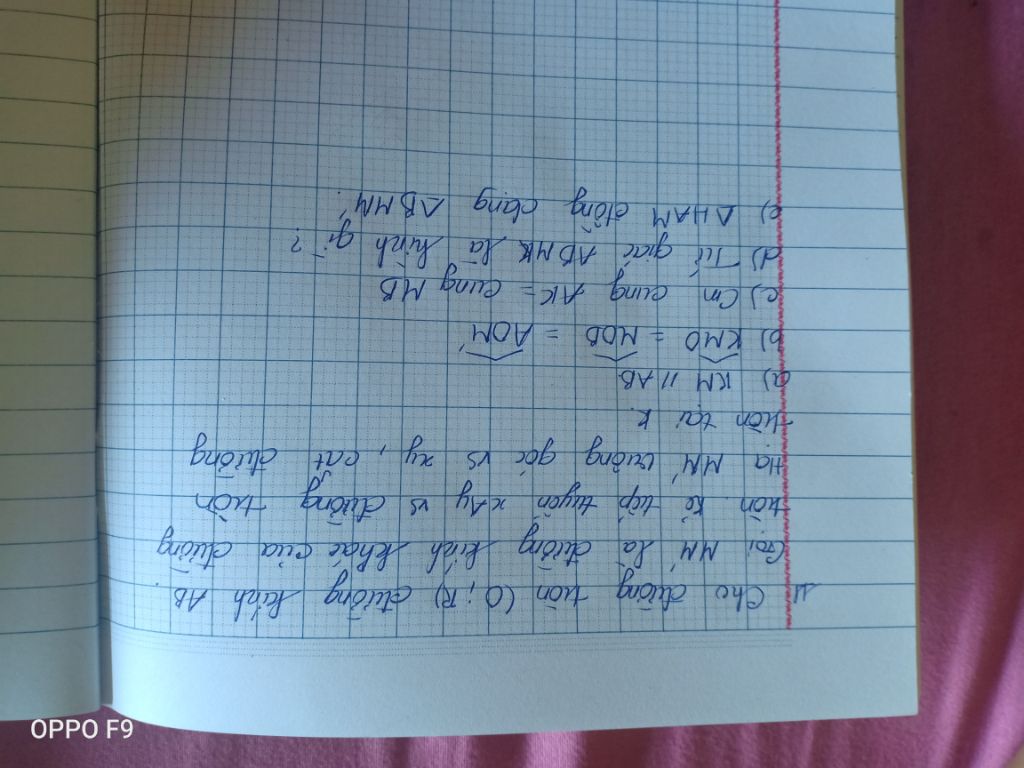 1/ Cho đường tròn (O; R) đường kính AB.
Gọi MM' là đường kính khác của đường
tròn. Kẻ tiếp tuyến xAy vs đường tròn
Hạ MM' vuông góc vs xy, cắt đường
tròn tại K.
a) KM // AB
b) KMO = MOB = AOM'
c) Cm cung AK = cung MB
d) Tứ giác ABMK là hình gì?
e) ΔHAM đồng dạng ΔBMM'.
OPPO F9